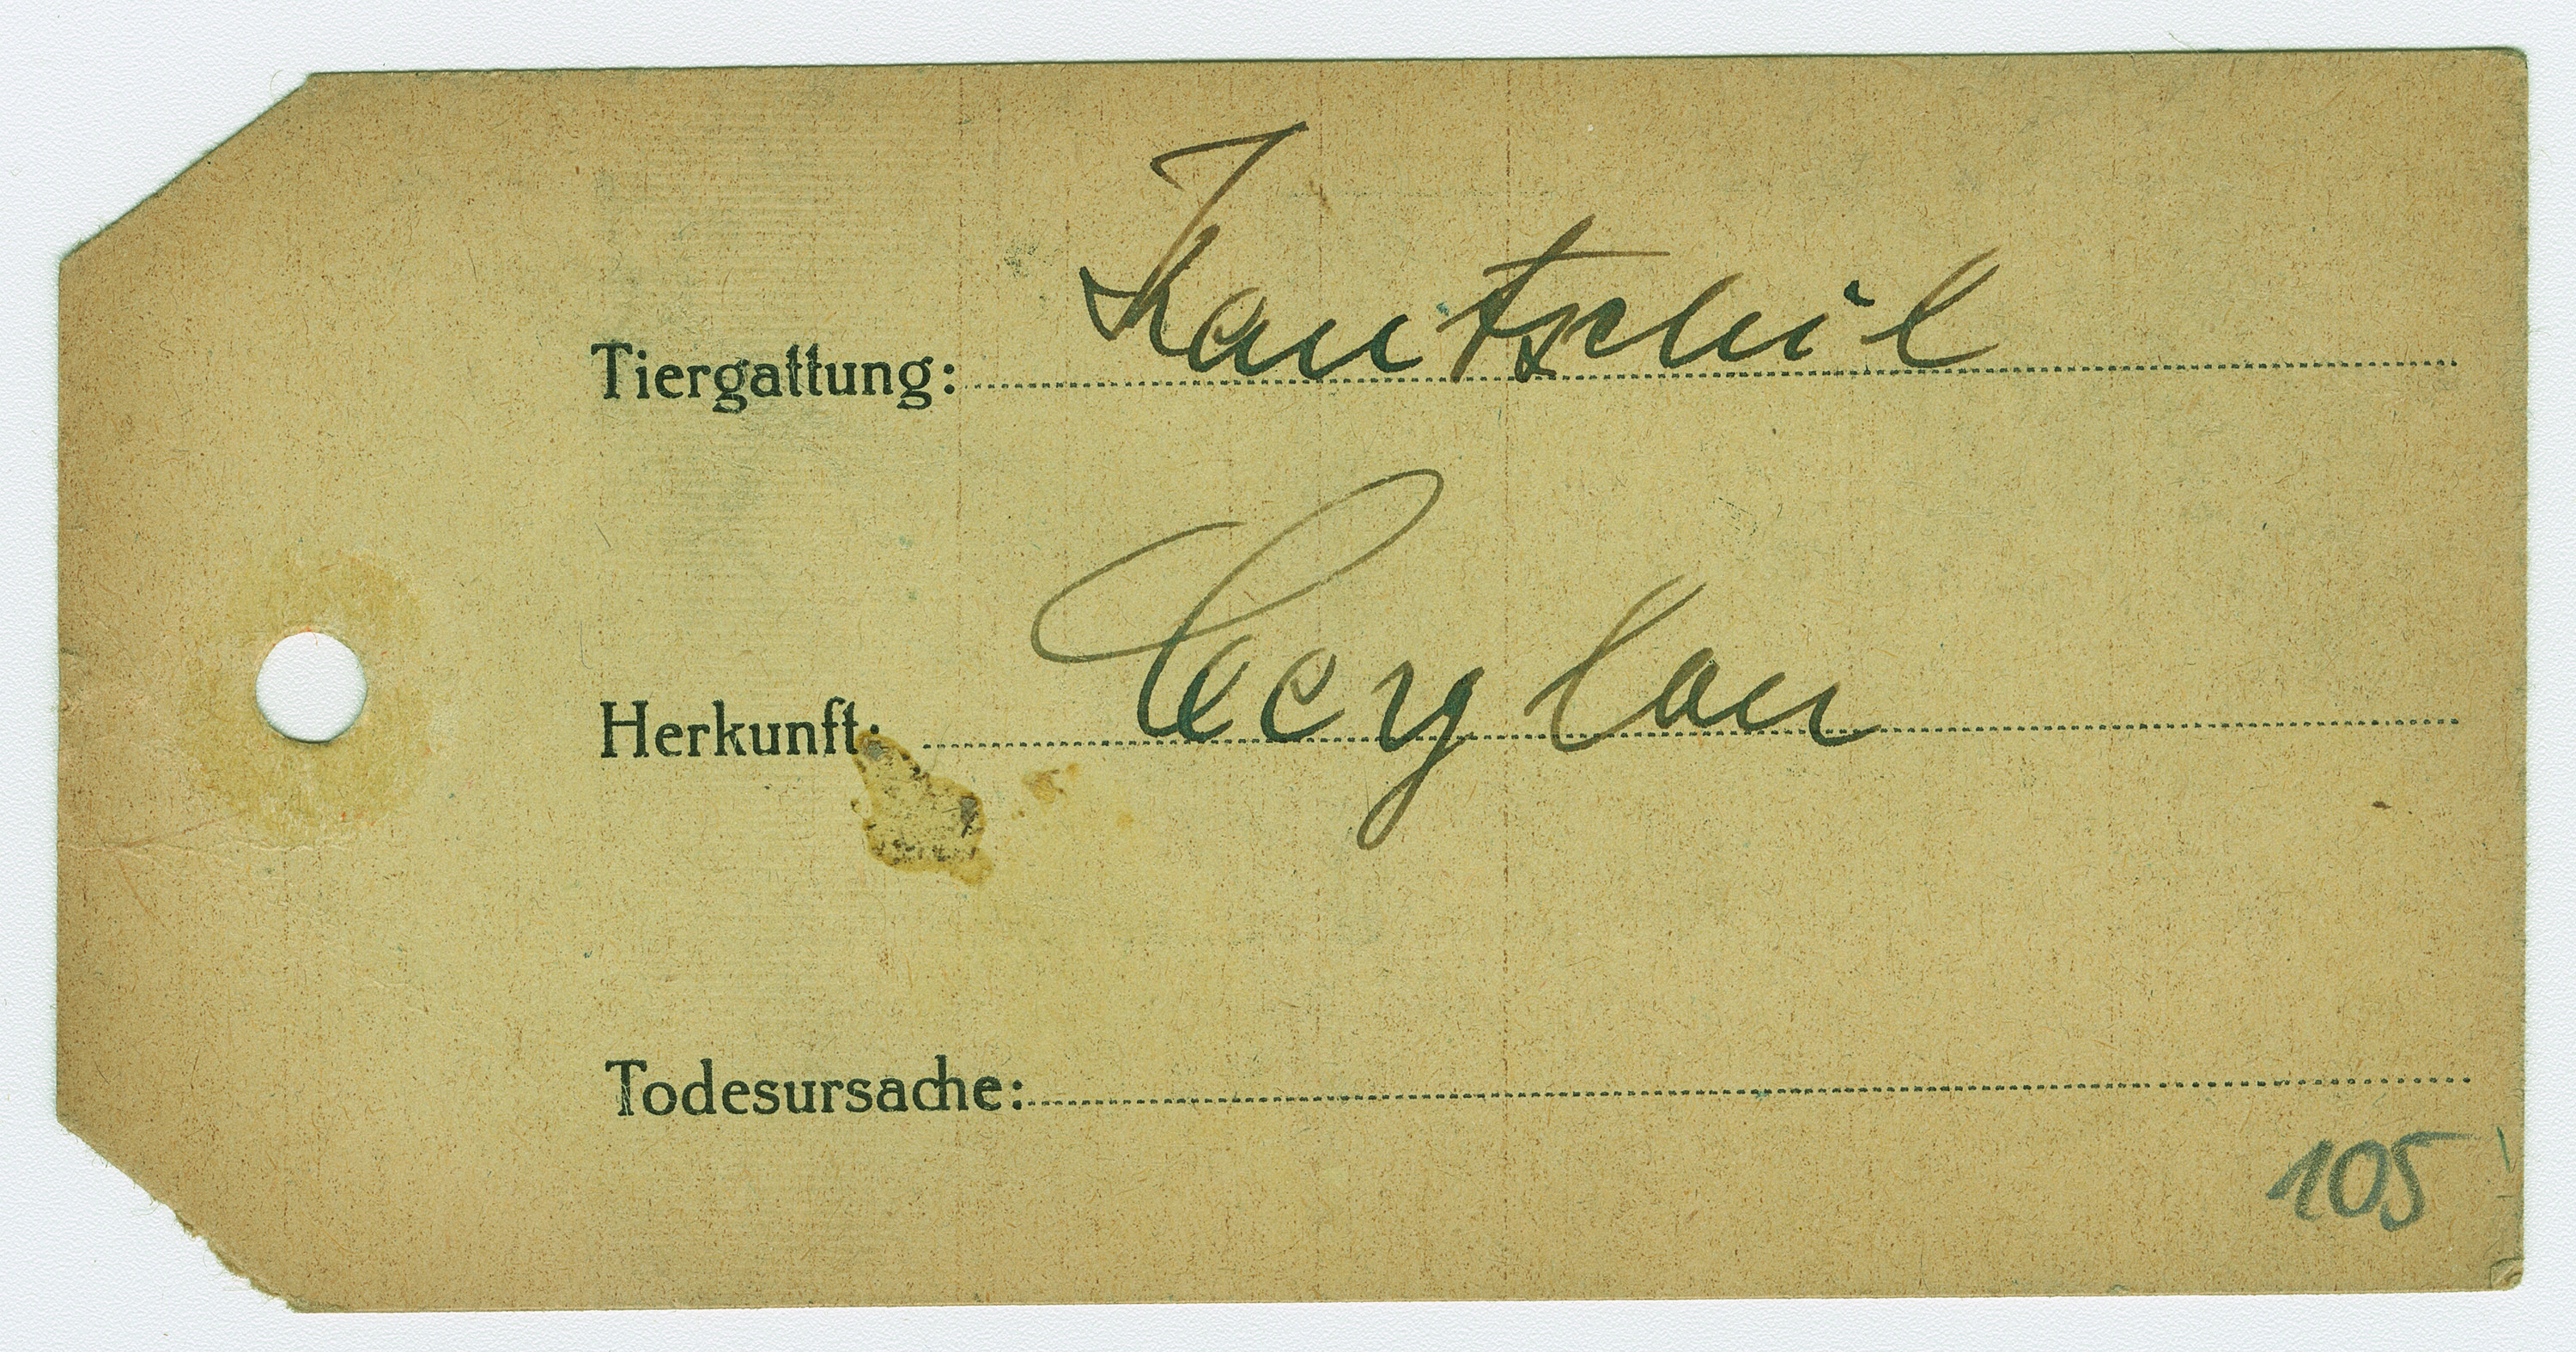 Tiergattung: Kantschil
Herkunft: Ceylon
Todesursache:
105